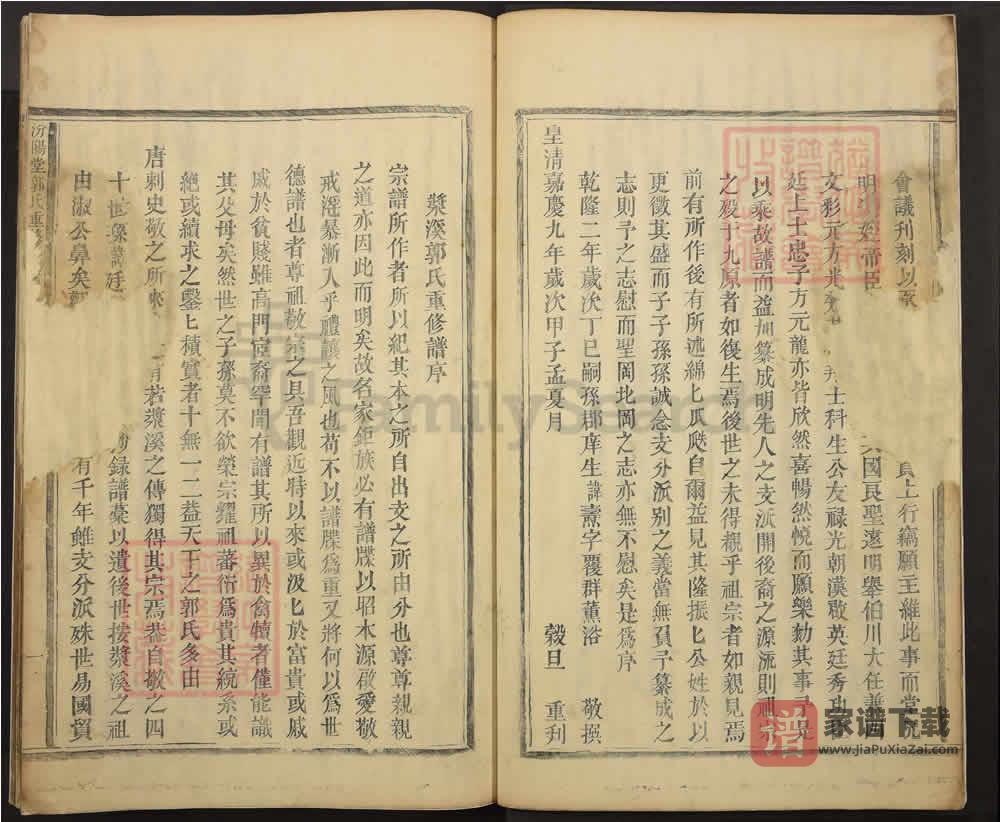 會議刋刻以
上行竊願主維此事而堂兄
明
國良聖遠明舉伯川大任善同
文彩元方兆
士科生公友禄光朝漢啟英廷秀功
廷上士忠子方元龍亦皆欣然喜暢然悅而願樂勷其事予兄
以乘故譜而益加纂成明先人之支派開後裔之源流則祖宗
之殁于九原者如復生焉後世之未得觀乎祖宗者如親見焉
前有所作後有所述綿匕瓜瓞自爾益見其隆振匕公姓於以
更徵其盛而子子孫孫誠念支分派别之義當無負予纂成之
志則予之志慰而聖闊北岡之志亦無不慰矣是爲序
乾隆二年歲次丁巳嗣孫郡庠生諱燾字覆群薰浴 敬撰
皇清嘉慶九年歲次甲子孟夏月 榖旦 重刋
槳溪郭氏重修譜序
宗譜所作者所以紀其本之所自出支之所由分也尊尊親親
之道亦因此而明矣故名家鉅族必有譜牒以昭本源啟愛敬
戒滛暴漸入乎禮讓之風也苟不以譜牒爲重又將何以爲世
德譜也者尊祖敬宗之具吾觀近時以來或汲匕於富貴或戚
戚於貧賤雖高門宦裔罕聞有譜其所以異於禽犢者僅能識
其父母矣然世之子孫莫不欲榮宗耀祖蕃衍爲貴其統系或
絶或續求之鑿匕積實者十無一二葢天下之郭氏多由
唐刺史敬之所
有若槳溪之傳獨得其宗焉葢自敬之四
十世
廷
録譜藁以遺後世按槳溪之祖
由淑公鼻矣
有千年雖支分派殊世易國貿
汾陽堂郭氏重
一
FamilySearch
譜
家谱下载
www.JiaPuXiaZai.com